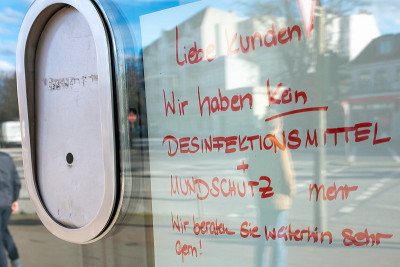 Liebe Kunden!
Wir haben Kein
DESINFEKTIONSMITTEL
+
MUNDSCHUTZ mehr
Wir beraten Sie Weiterhin Sehr
gern!